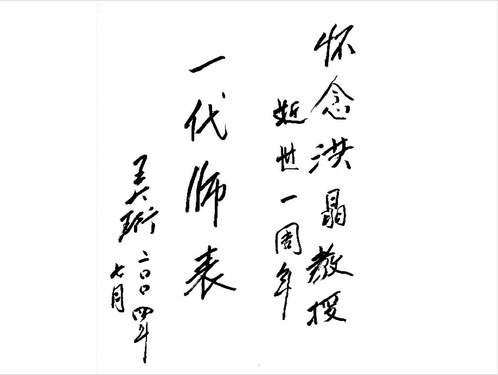 怀念洪晶教授
逝世一周年
一代师表
王大珩 二〇〇四年
七月